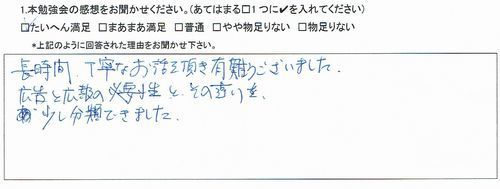 1.本勉強会の感想をお聞かせください。(あてはまる□1つに✔を入れてください)
☑たいへん満足 □まあまあ満足 □普通 □やや物足りない □物足りない
*上記のように回答された理由をお聞かせ下さい。
長時間、丁寧なお話を頂き有難うございました。
広告と広報の必要性と、その違いを、
少し分類できました。